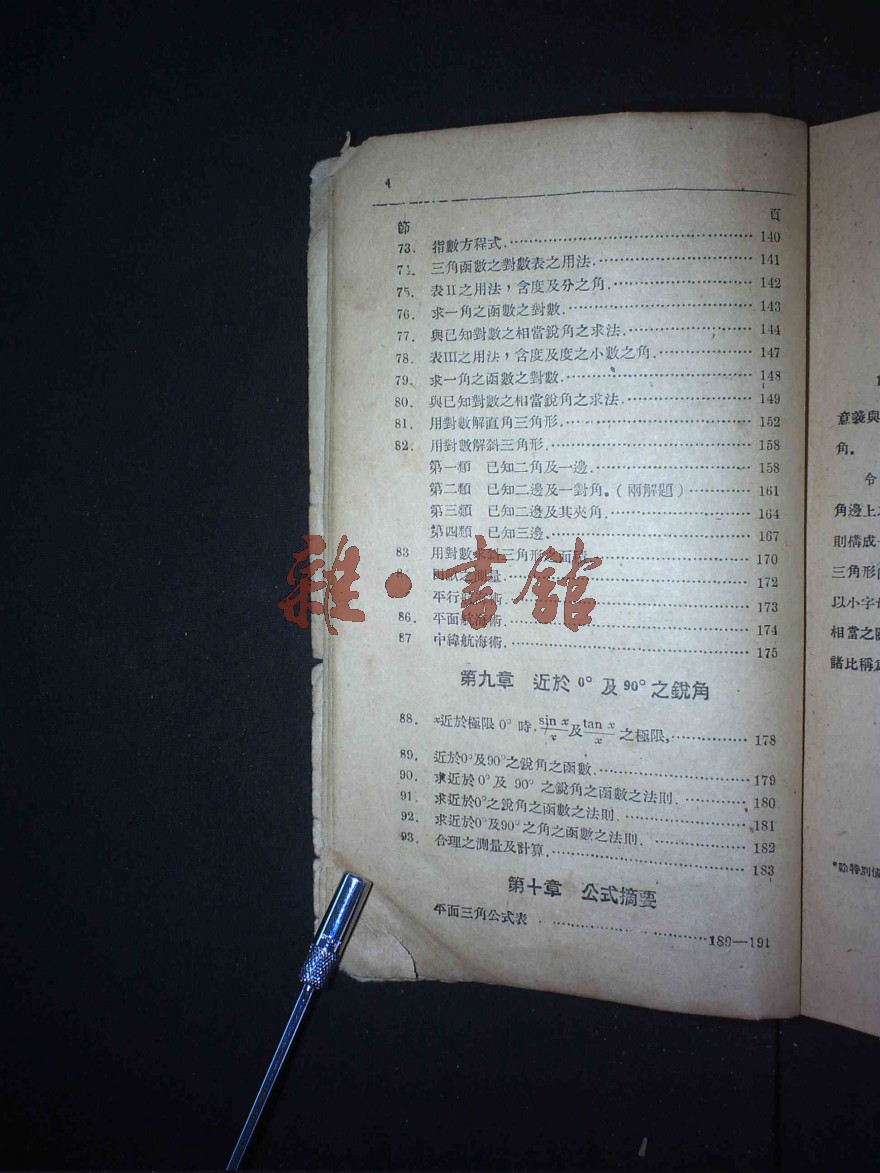 4
節 頁
73. 指數方程式. 140
74. 三角函數之對數表之用法. 141
75. 表II之用法，含度及分之角. 142
76. 求一角之函數之對數. 143
77. 與已知對數之相當銳角之求法. 144
78. 表III之用法，含度及度之小數之角. 147
79. 求一角之函數之對數. 148
80. 與已知對數之相當銳角之求法. 149
81. 用對數解直角三角形. 152
82. 用對數解斜三角形. 158
第一類 已知二角及一邊. 158
第二類 已知二邊及一對角。(兩解題) 161
第三類 已知二邊及其夾角. 164
第四類 已知三邊. 167
83 用對數求斜三角形之面積 170
之測量. 172
平行航海術. 173
86. 平面航海術. 174
87 中緯航海術. 175
第九章 近於 0° 及 90° 之銳角
88. x近於極限 0° 時. sin x/x 及 tan x/x 之極限, 178
89. 近於0°及90°之銳角之函數. 179
90. 求近於 0° 及 90° 之銳角之函數之法則. 180
91. 求近於0°之銳角之函數之法則. 181
92. 求近於0°及90°之角之函數之法則. 182
93. 合理之測量及計算. 183
第十章 公式摘要
平面三角公式表 189—191
雜·書館
意義與
角。
令
角邊上
則構成
三角形
以小字
相當之
諸比稱